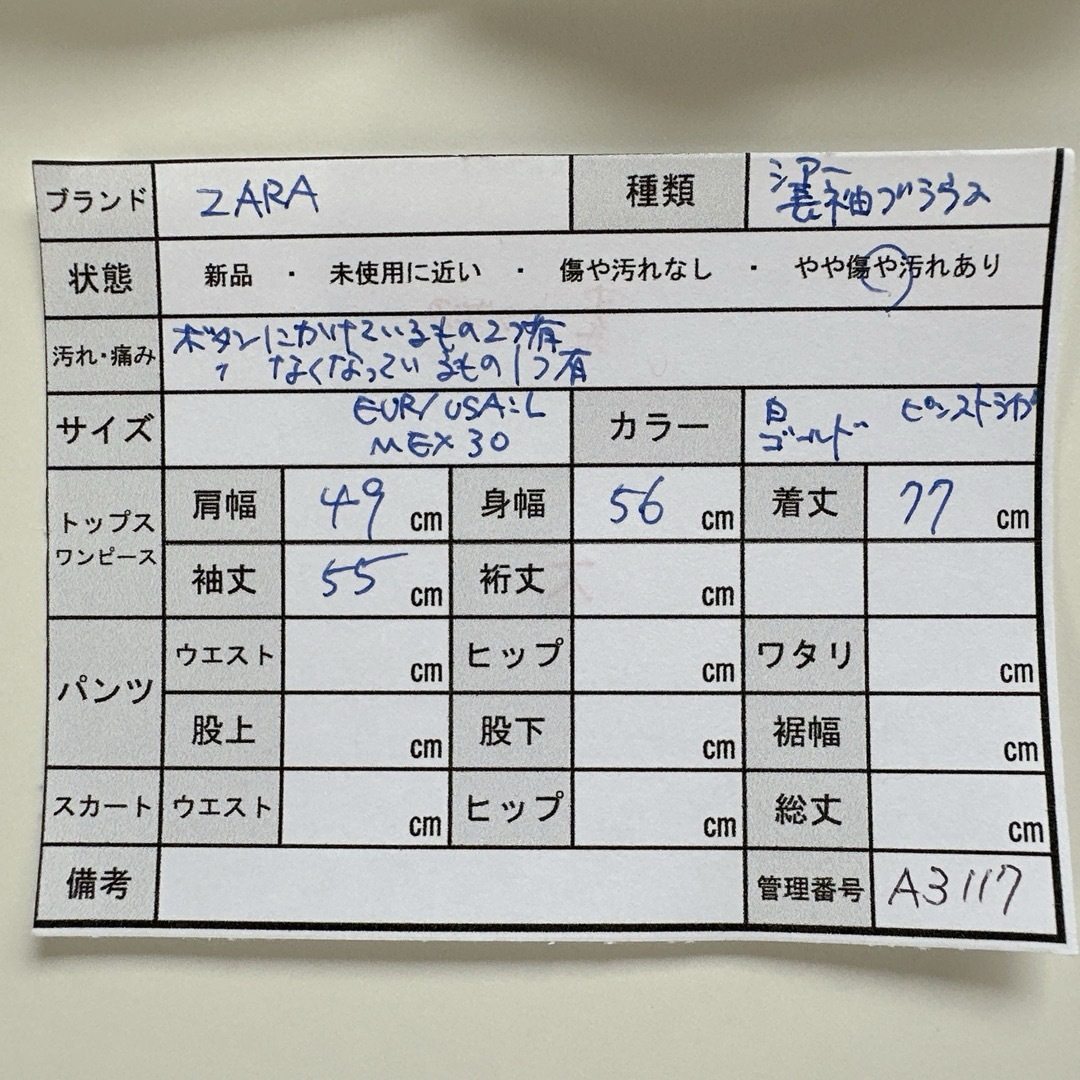 ブランド ZARA 種類 シアー
長袖ブラウス
状態 新品 ・ 未使用に近い ・ 傷や汚れなし ・ やや傷や汚れあり
汚れ・痛み ボタンにかけているもの2つ有
〃 なくなっているもの1つ有
サイズ EUR/USA:L
MEX 30
カラー 白 ピンストライプ
ゴールド
トップス
ワンピース
肩幅 49 cm 身幅 56 cm 着丈 77 cm
袖丈 55 cm 裄丈 cm
パンツ ウエスト cm ヒップ cm ワタリ cm
股上 cm 股下 cm 裾幅 cm
スカート ウエスト cm ヒップ cm 総丈 cm
備考 管理番号 A3117